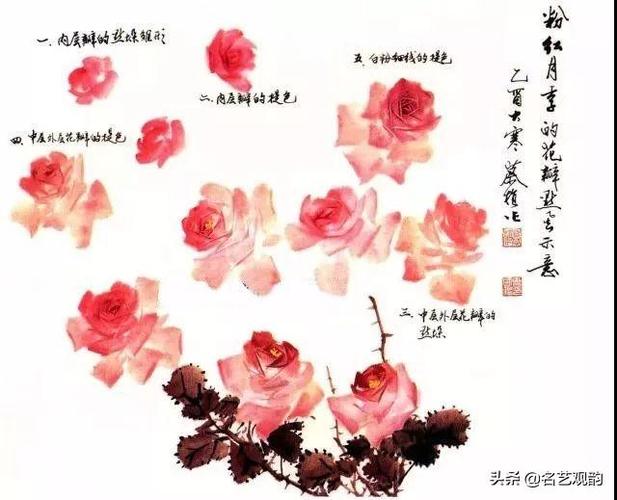 粉红月季的花瓣点写示意
乙酉大寒
一、内层瓣的点染雏形
二、内层瓣的提色
五、白粉细线的提色
四、中层外层花瓣的提色
三、中层外层花瓣的
点染
头条 @名艺观韵